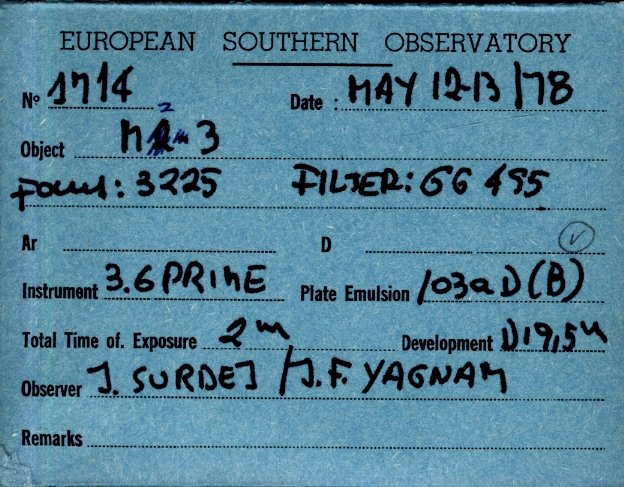 EUROPEAN SOUTHERN OBSERVATORY
Nº 1714 Date : MAY 12-13/78
Object M 3
FOCUS: 3225 FILTER: GG 495
Ar D
Instrument 3.6 PRIME Plate Emulsion 103aD(B)
Total Time of. Exposure 2m Development D19,5m
Observer J. SURDEJ / J.F. YAGNAM
Remarks